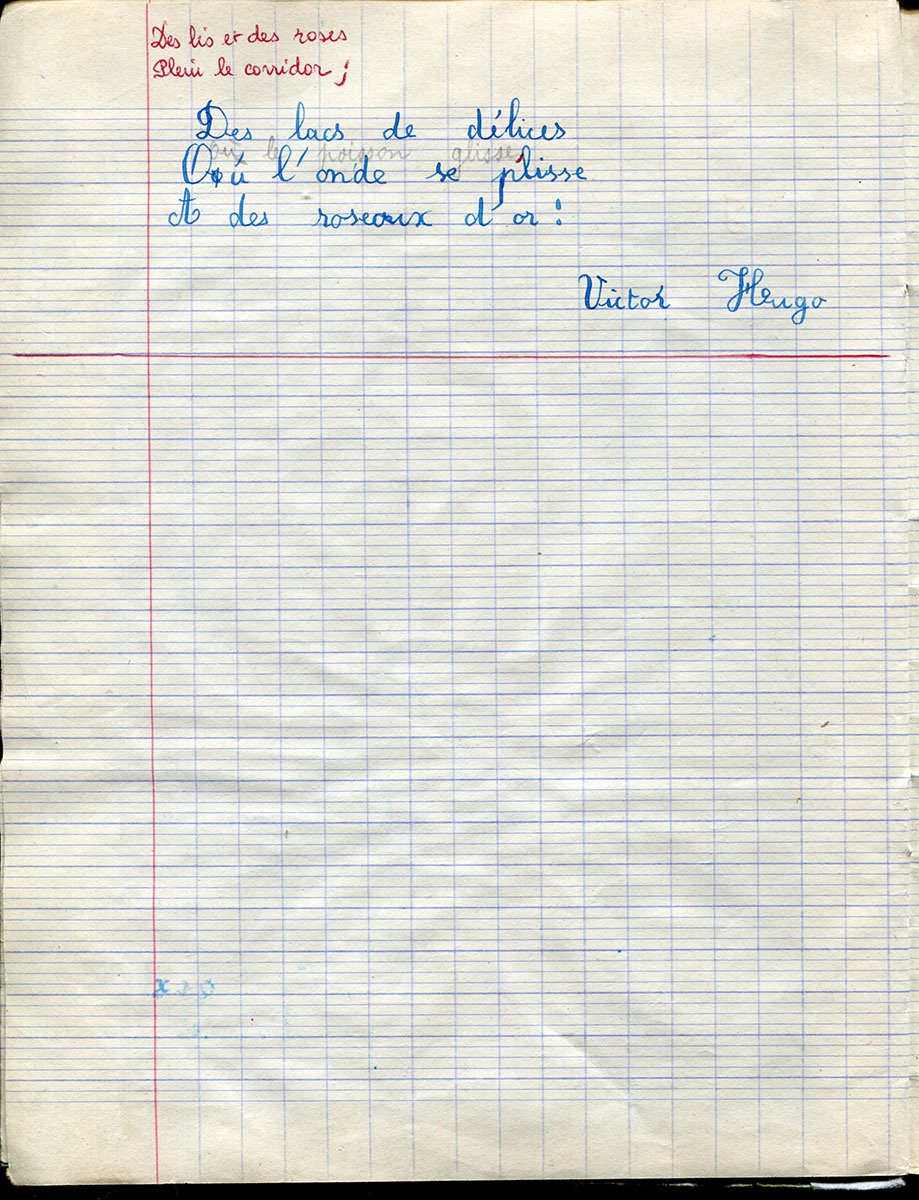 Des lis et des roses
Plein le corridor ;
Des lacs de délices
où le poisson glisse
Où l'onde se plisse
A des roseaux d'or !
Victor Hugo